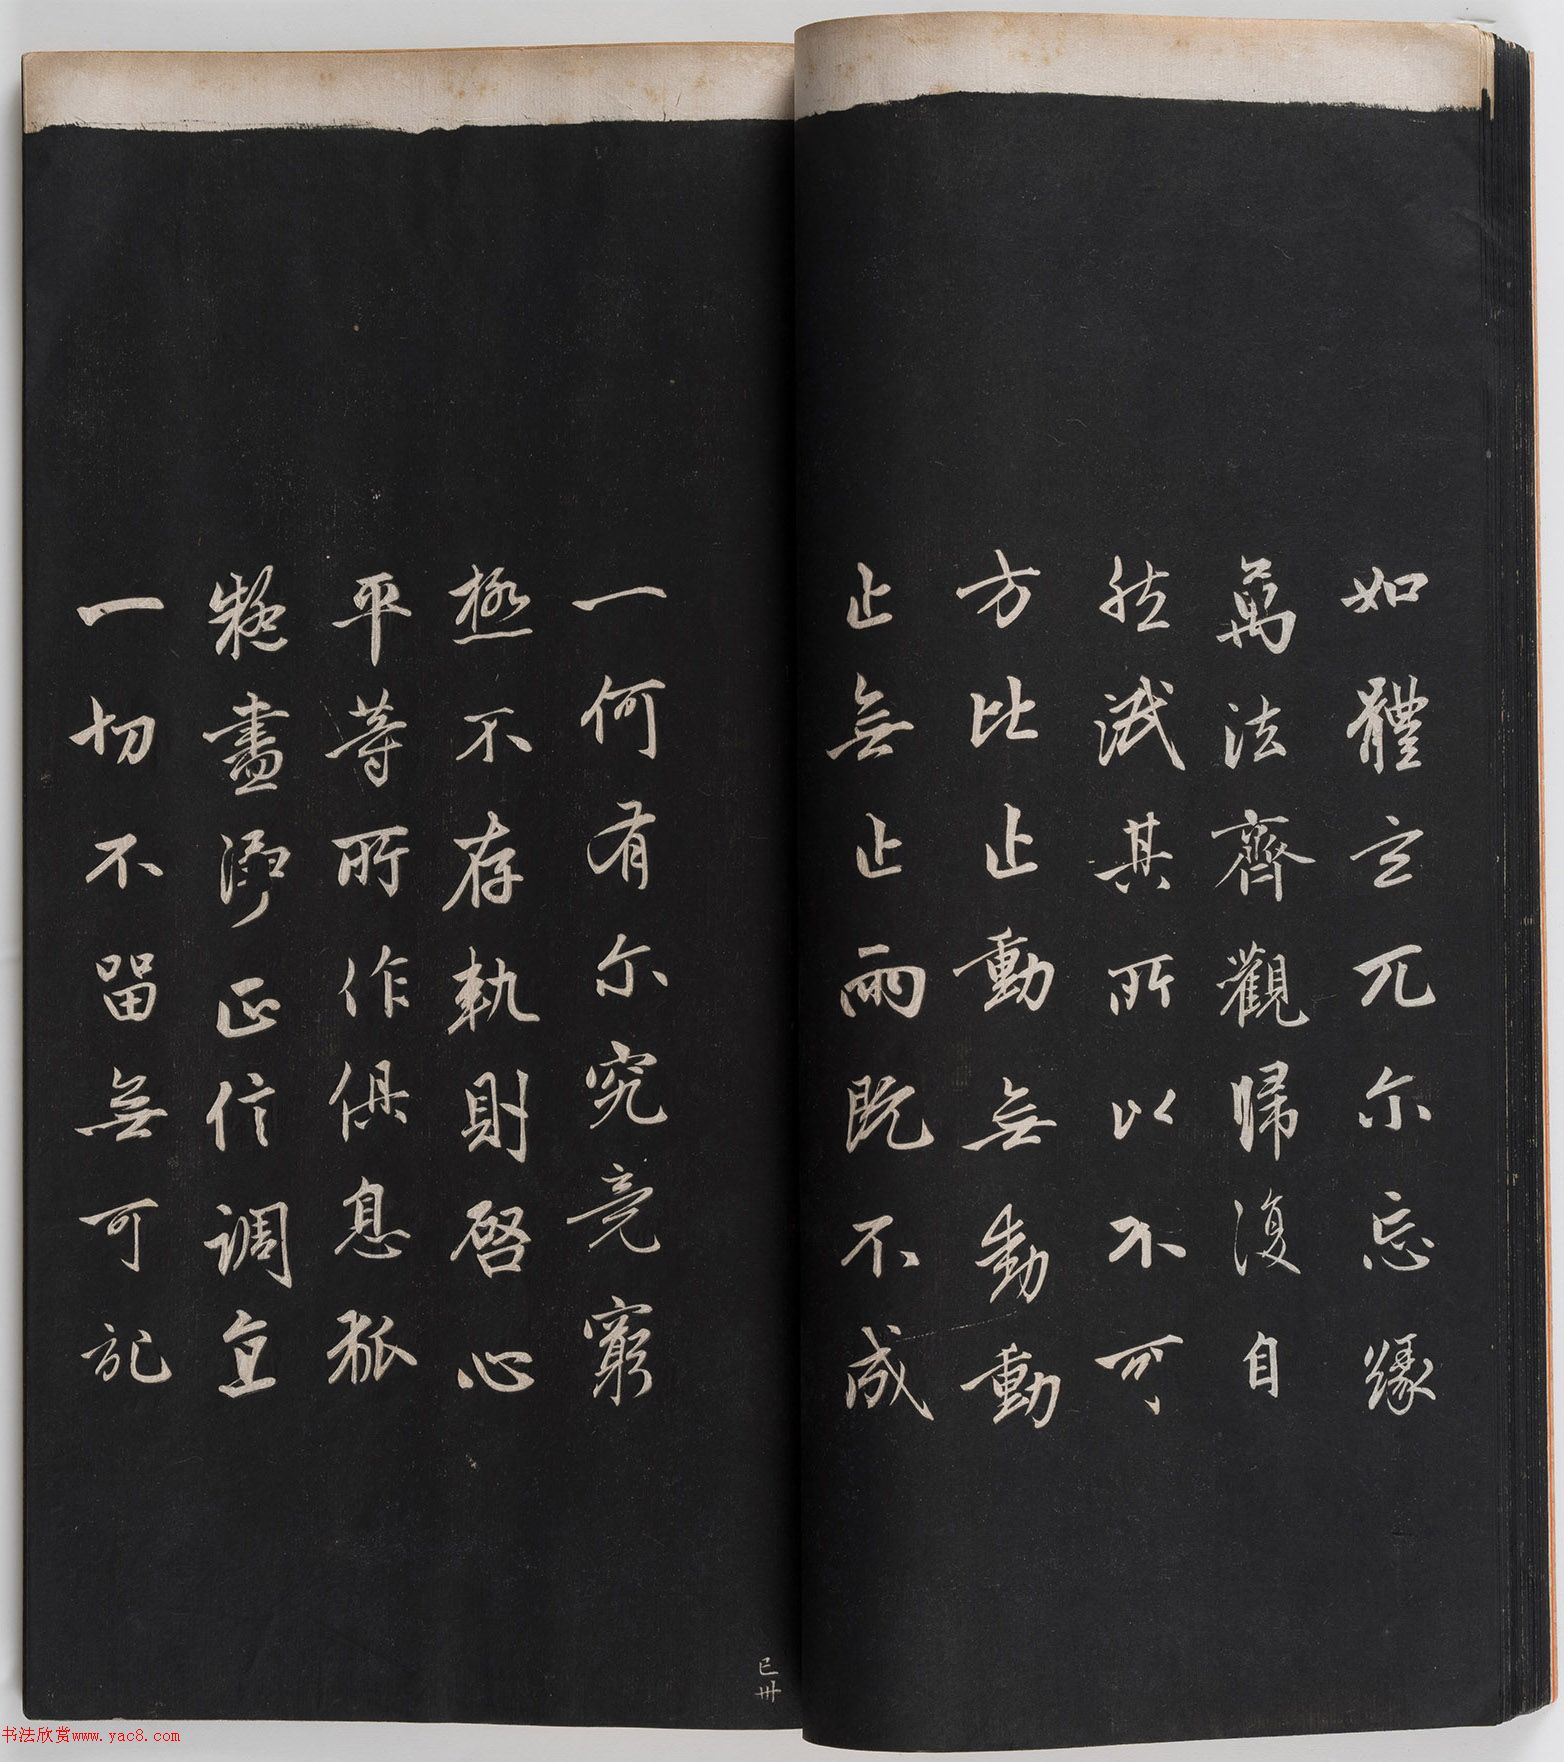 如體玄兀尔忘緣
萬法齊觀歸復自
然泯其所以不可
方比止動無動動
止無止兩既不成
一何有尔究竟窮
極不存軌則啓心
平等所作俱息狐
疑盡淨正信調直
一切不留無可記
已卅
书法欣赏www.yac8.com